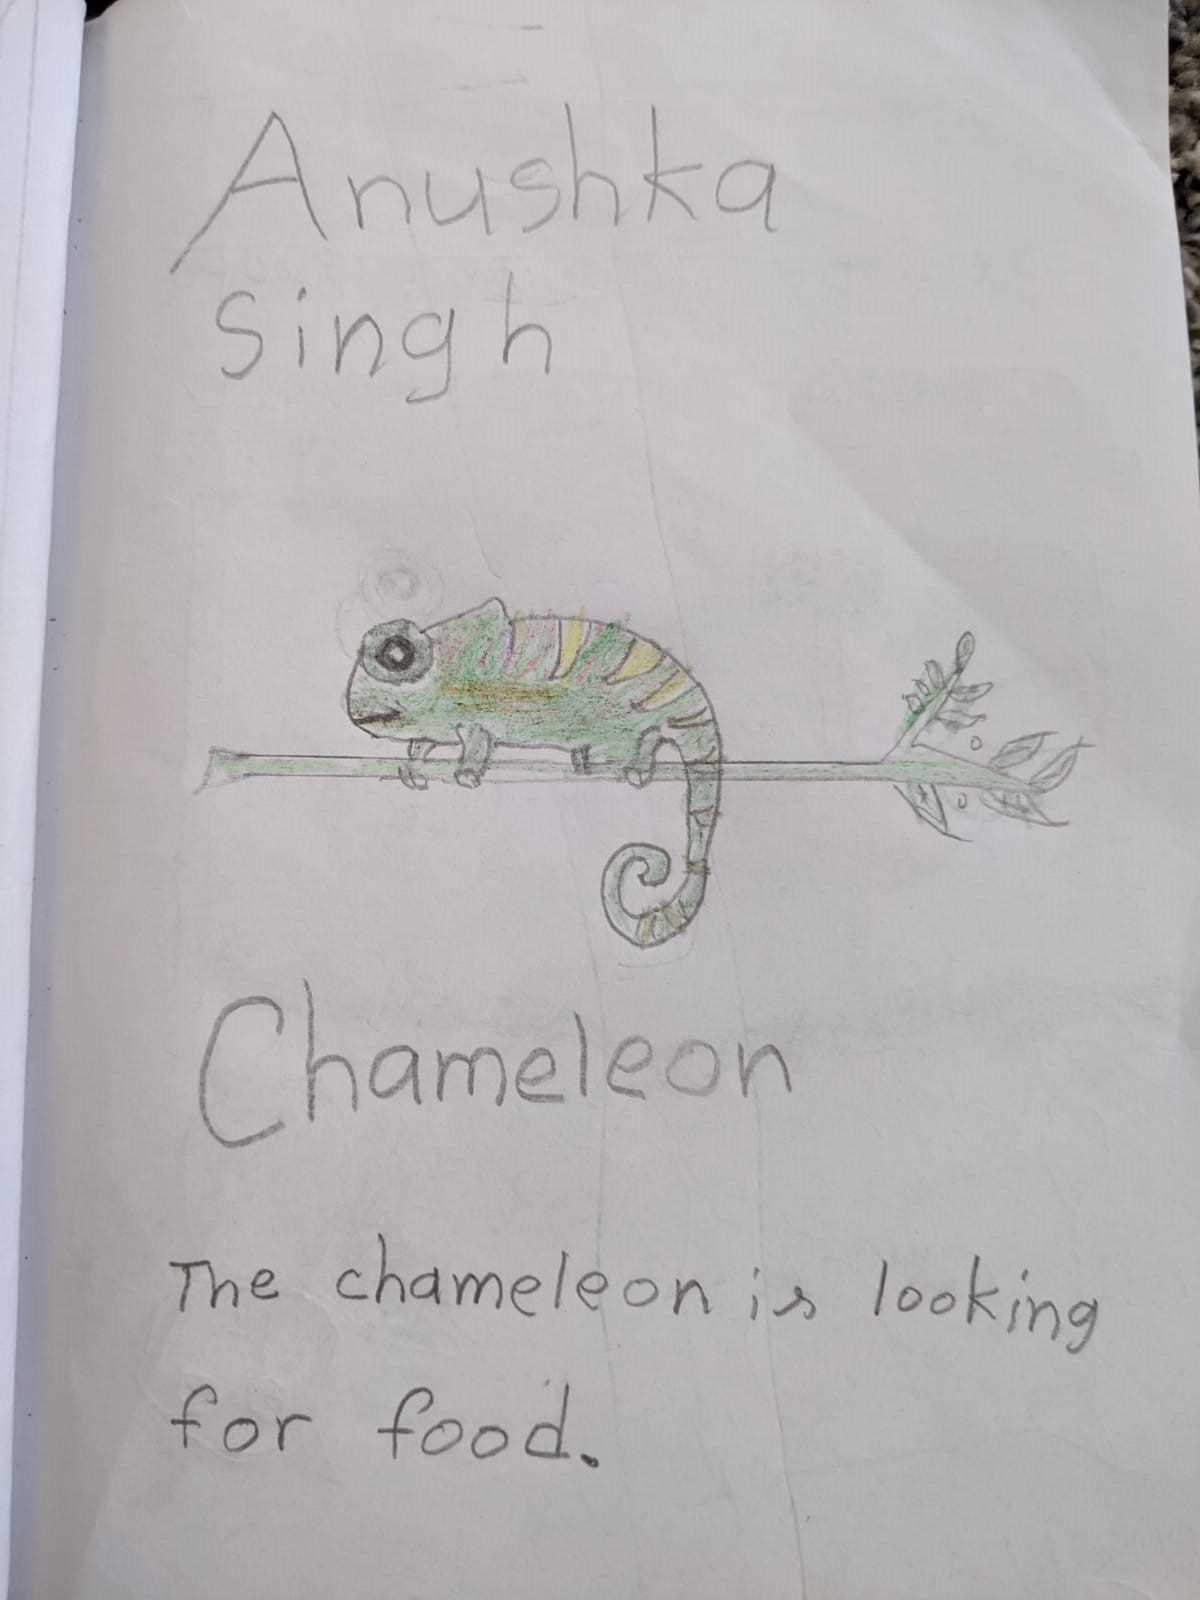 Anushka
Singh
Chameleon
The chameleon is looking
for food.